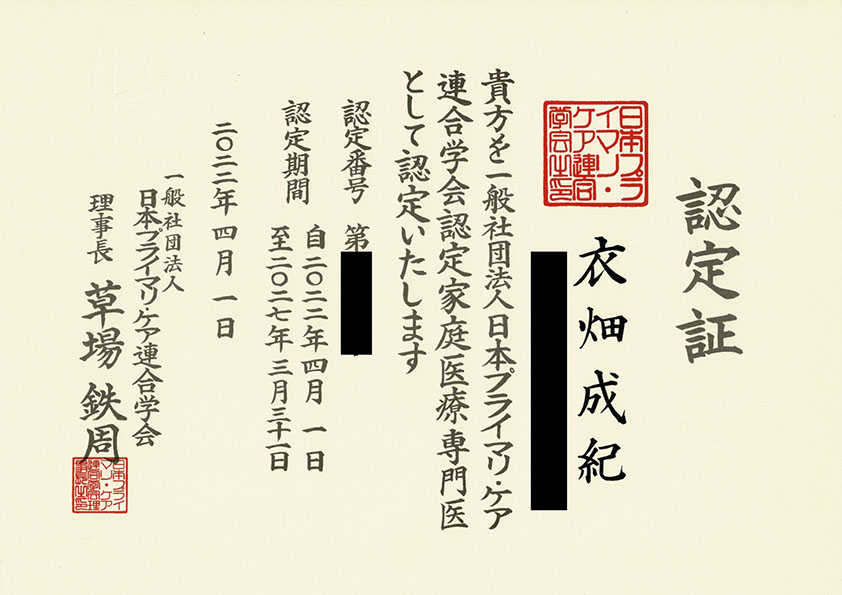 認定証
日本プラ
イマリ・
ケア連合
学会之印
衣畑成紀
貴方を一般社団法人日本プライマリ・ケア
連合学会認定家庭医療専門医
として認定いたします
認定番号 第
認定期間 自二〇二二年四月一日
至二〇二七年三月三十一日
二〇二二年四月一日
一般社団法人
日本プライマリ・ケア連合学会
理事長 草場鉄周
日本プライ
マリ・ケア
連合学会理
事長之印